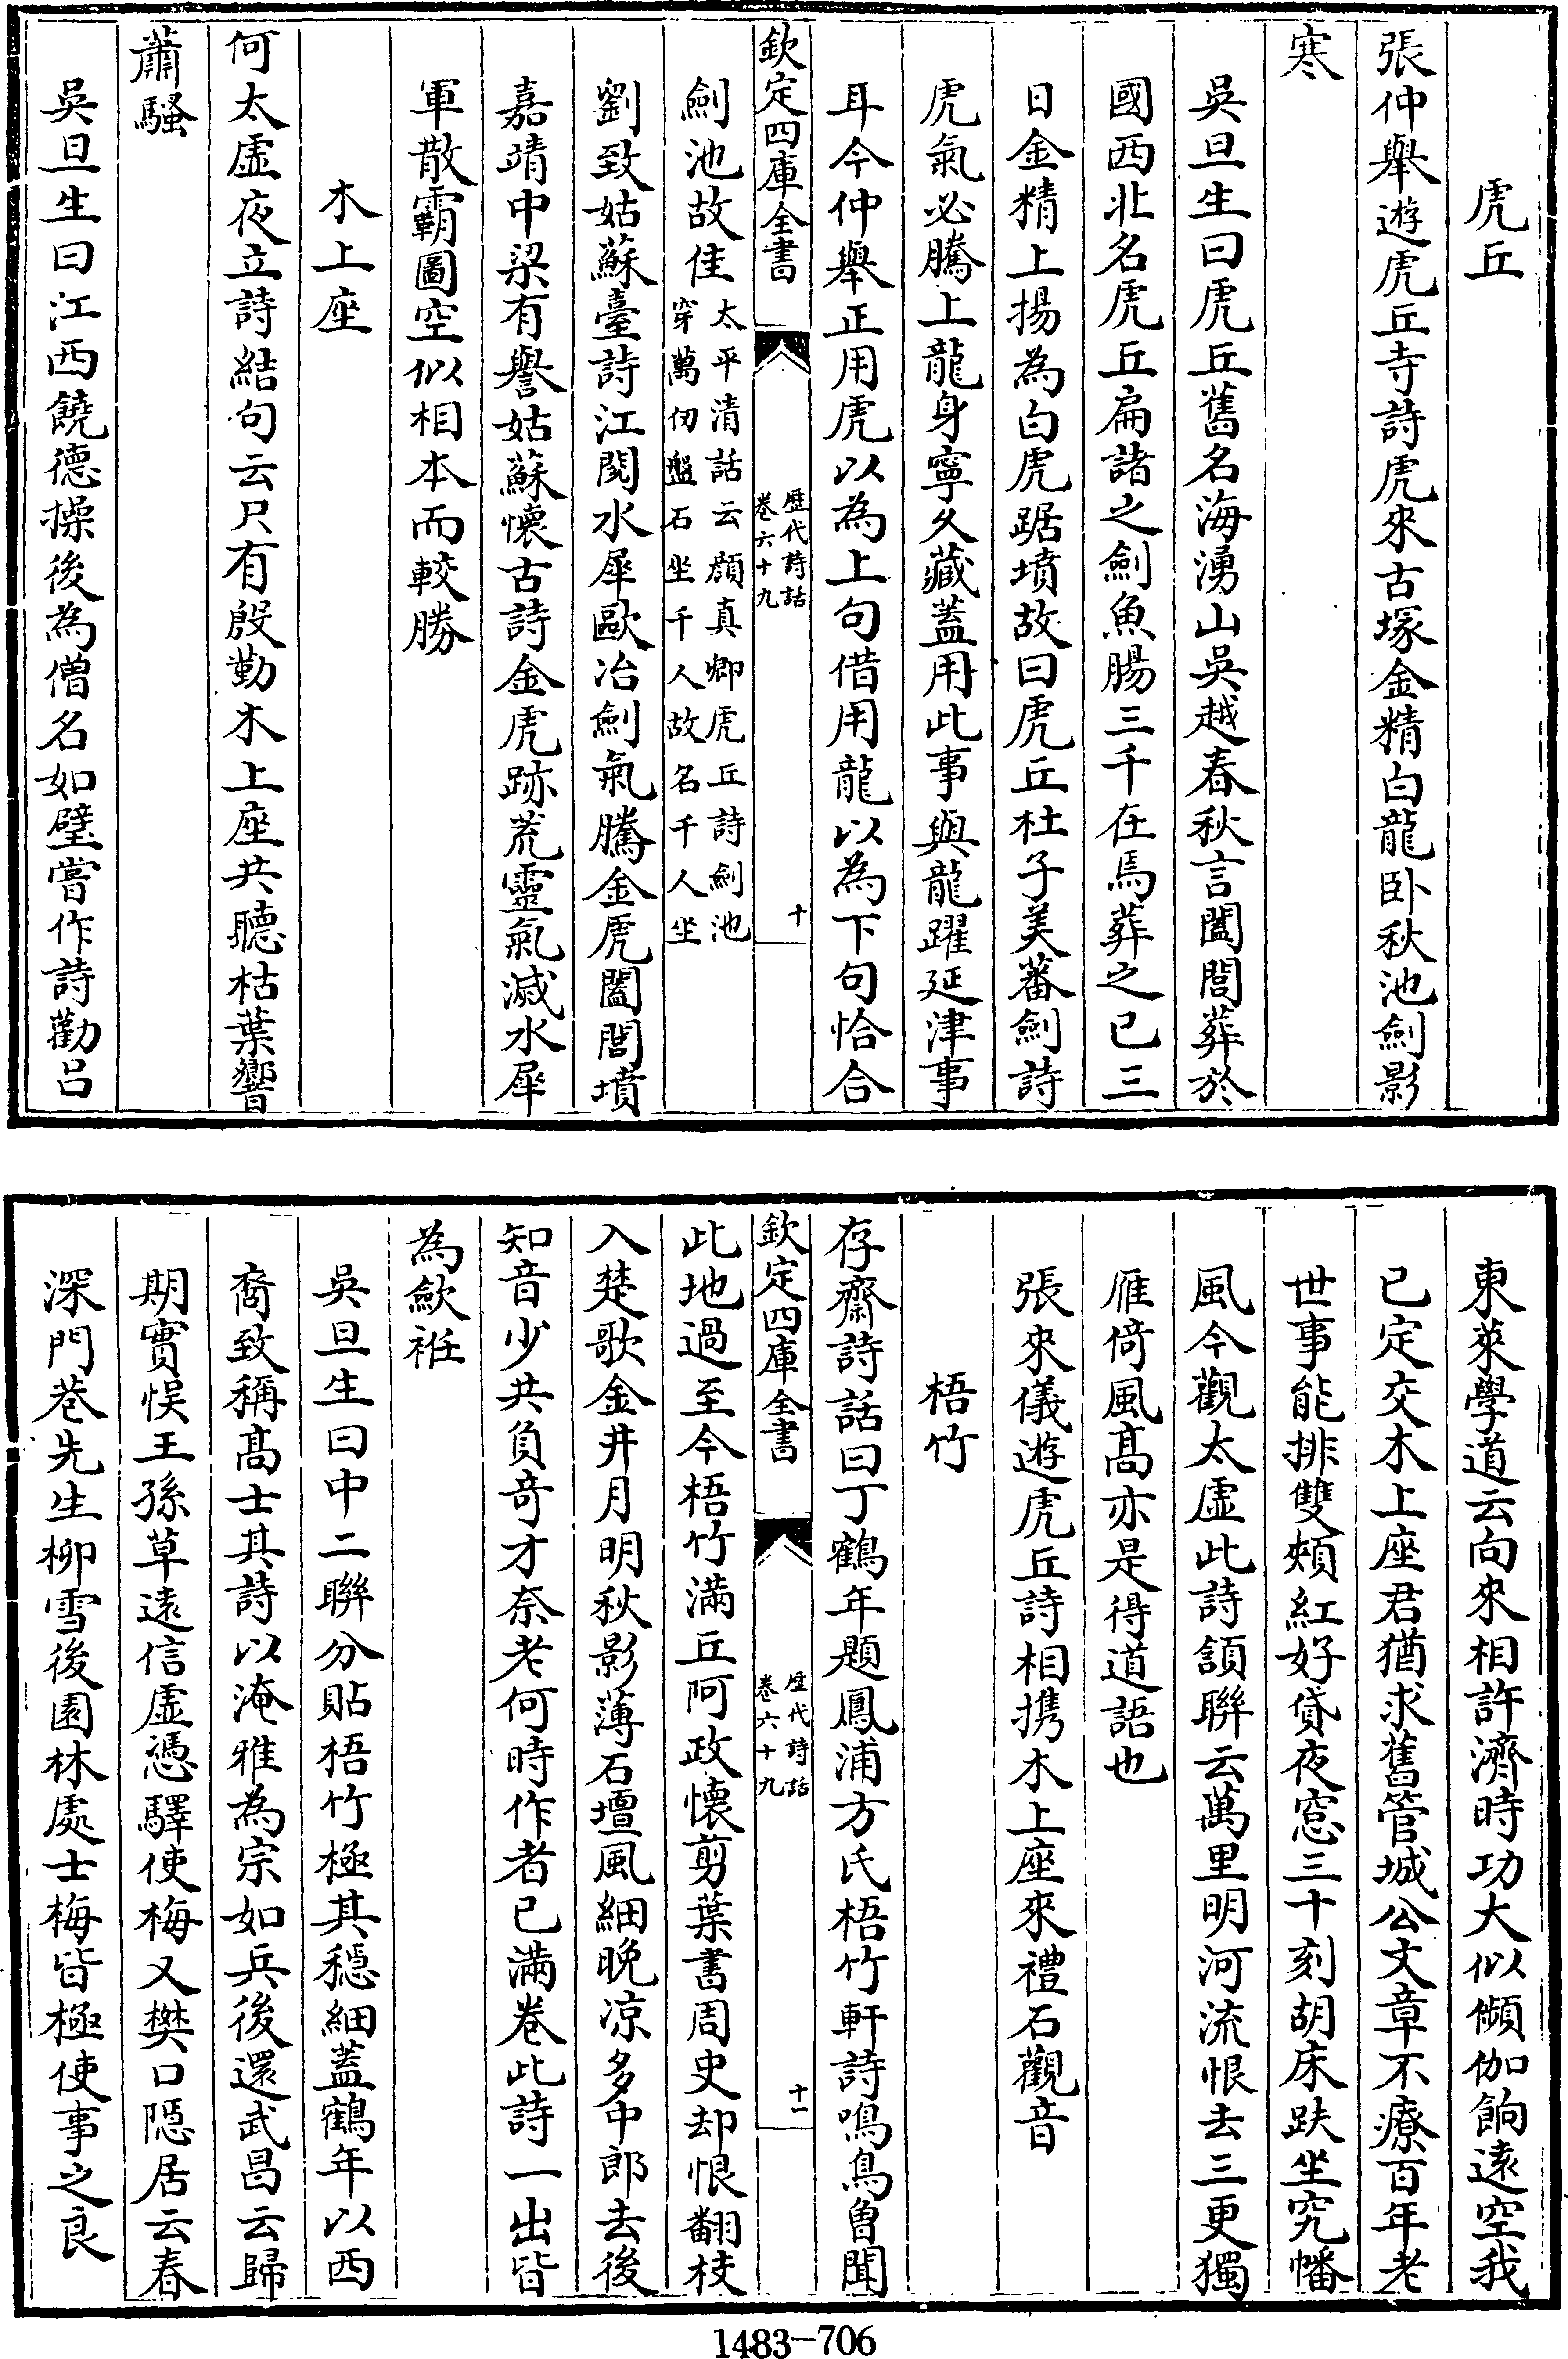 虎丘
張仲舉遊虎丘寺詩虎來古塚金精白龍卧秋池劍影
寒
吳旦生曰虎丘舊名海湧山吳越春秋言闔閭葬於
國西北名虎丘扁諸之劍魚腸三千在焉葬之已三
日金精上揚為白虎踞墳故曰虎丘杜子美蕃劍詩
虎氣必騰上龍身寧久藏蓋用此事與龍躍延津事
耳今仲舉正用虎以為上句借用龍以為下句恰合
欽定四庫全書
歷代詩話
卷六十九
十
劍池故佳
太平清話云顔真卿虎丘詩劍池
穿萬仞盤石坐千人故名千人坐
劉致姑蘇臺詩江閱水犀歐冶劍氣騰金虎闔閭墳
嘉靖中梁有譽姑蘇懷古詩金虎跡荒靈氣滅水犀
軍散霸圖空似相本而較勝
木上座
何太虛夜立詩結句云只有殷勤木上座共聽枯葉響
蕭騷
吳旦生曰江西饒德操後為僧名如璧嘗作詩勸呂
東萊學道云向來相許濟時功大似頻伽餉遠空我
已定交木上座君猶求舊管城公文章不療百年老
世事能排雙頰紅好貸夜窓三十刻胡床趺坐究幡
風今觀太虛此詩頷聯云萬里明河流恨去三更獨
雁倚風髙亦是得道語也
張來儀遊虎丘詩相携木上座來禮石觀音
梧竹
存齋詩話曰丁鶴年題鳳浦方氏梧竹軒詩鳴鳥曾聞
欽定四庫全書
歷代詩話
卷六十九
十一
此地過至今梧竹滿丘阿政懷剪葉書周史却恨翻枝
入楚歌金井月明秋影薄石壇風細晚凉多中郎去後
知音少共負奇才奈老何時作者已滿卷此詩一出皆
為歛袵
吳旦生曰中二聯分貼梧竹極其穩細蓋鶴年以西
裔致稱髙士其詩以淹雅為宗如兵後還武昌云歸
期實悮王孫草遠信虛憑驛使梅又樊口隠居云春
深門巷先生柳雪後園林處士梅皆極使事之良
1483-706